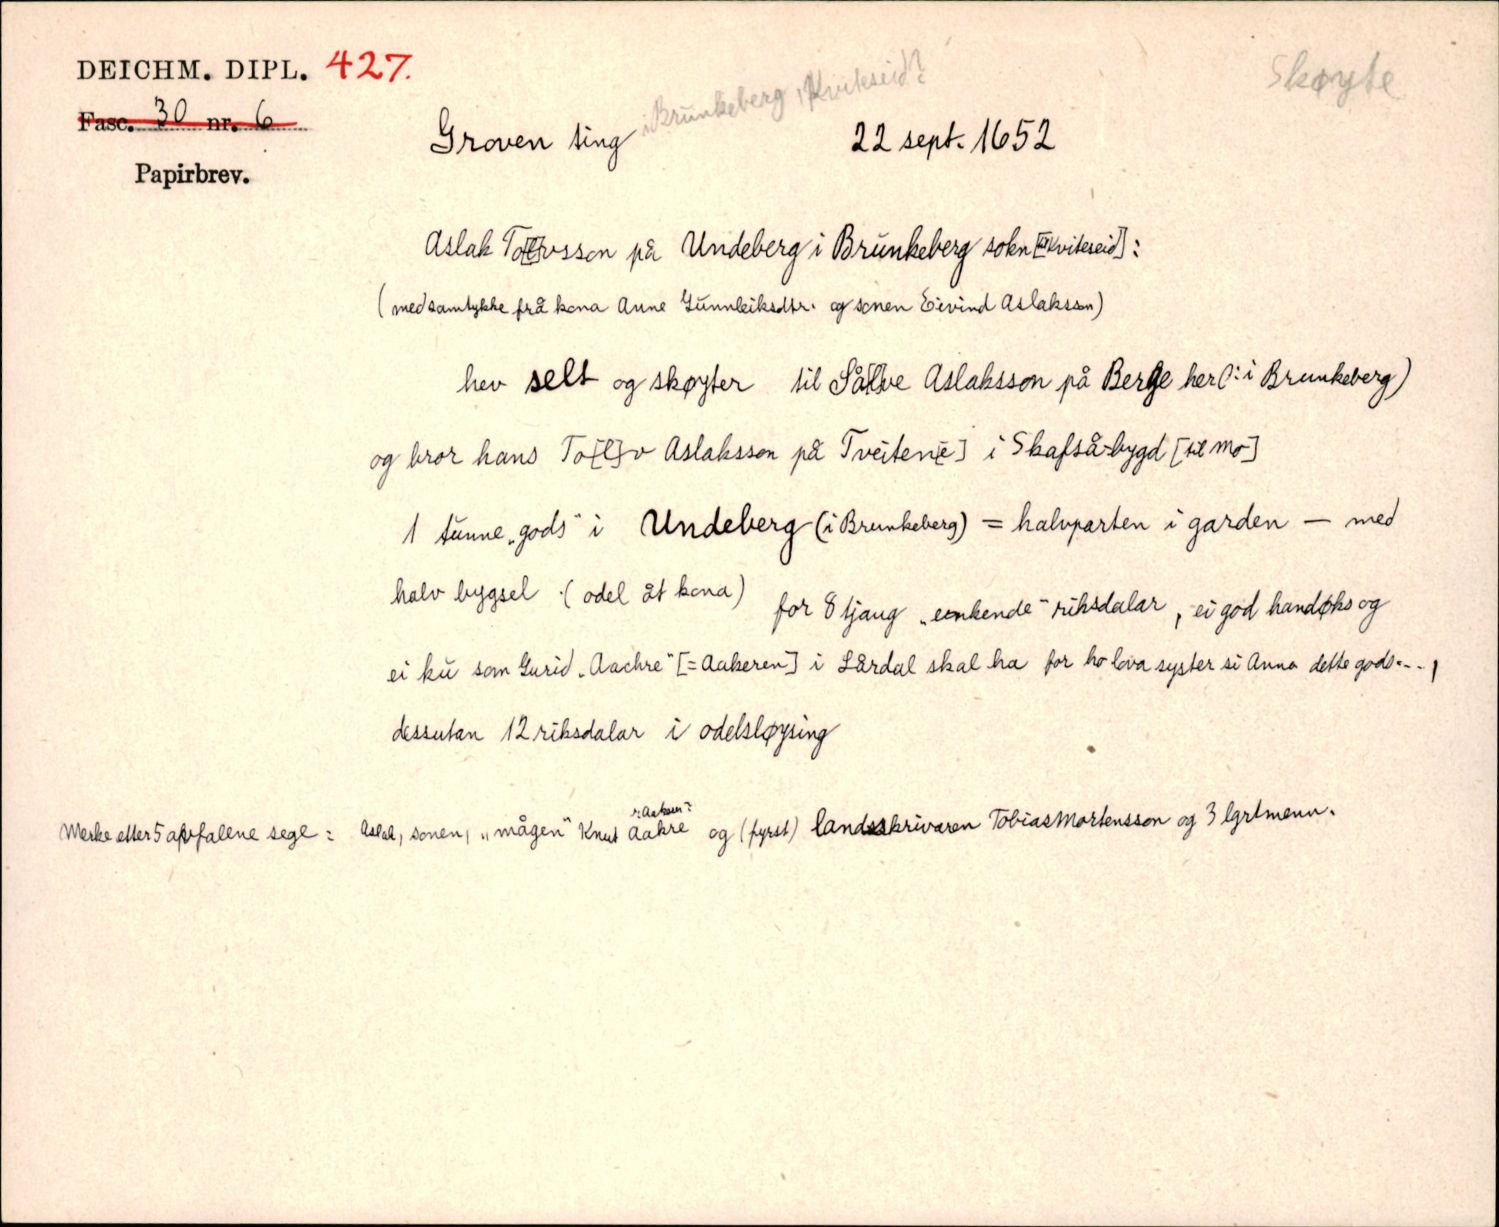 DEICHM. DIPL. 427.
Skøyte
Fasc. 30 nr. 6
i Brunkeberg, Kviteseid?
Groven ting 22 sept. 1652
Papirbrev.
Aslak To[l]vsson på Undeberg i Brunkeberg sokn [Kviteseid]:
(med samtykke frå kona Anne Gunnleiksdtr. og sonen Eivind Aslaksson)
hev selt og skøyter til Såve Aslaksson på Berge her (: i Brunkeberg)
og bror hans To[l]v Aslaksson på Tveiten[e] i Skafså-bygd [til Mo]
1 tunne „gods" i Undeberg (i Brunkeberg) = halvparten i garden — med
halv bygsel (odel åt kona) for 8 tjaug „enkende" riksdalar, ei god handøks og
ei ku som Gurid „Aachre" [= Aakeren] i Lårdal skal ha for ho lova syster si Anna dette gods...,
dessutan 12 riksdalar i odelsløysing
Merke etter 5 avfalene segl: Aslak, sonen, „mågen" Knut Aakre og (fyrst) landsskrivaren Tobias Mortensson og 3 lgrtmenn.